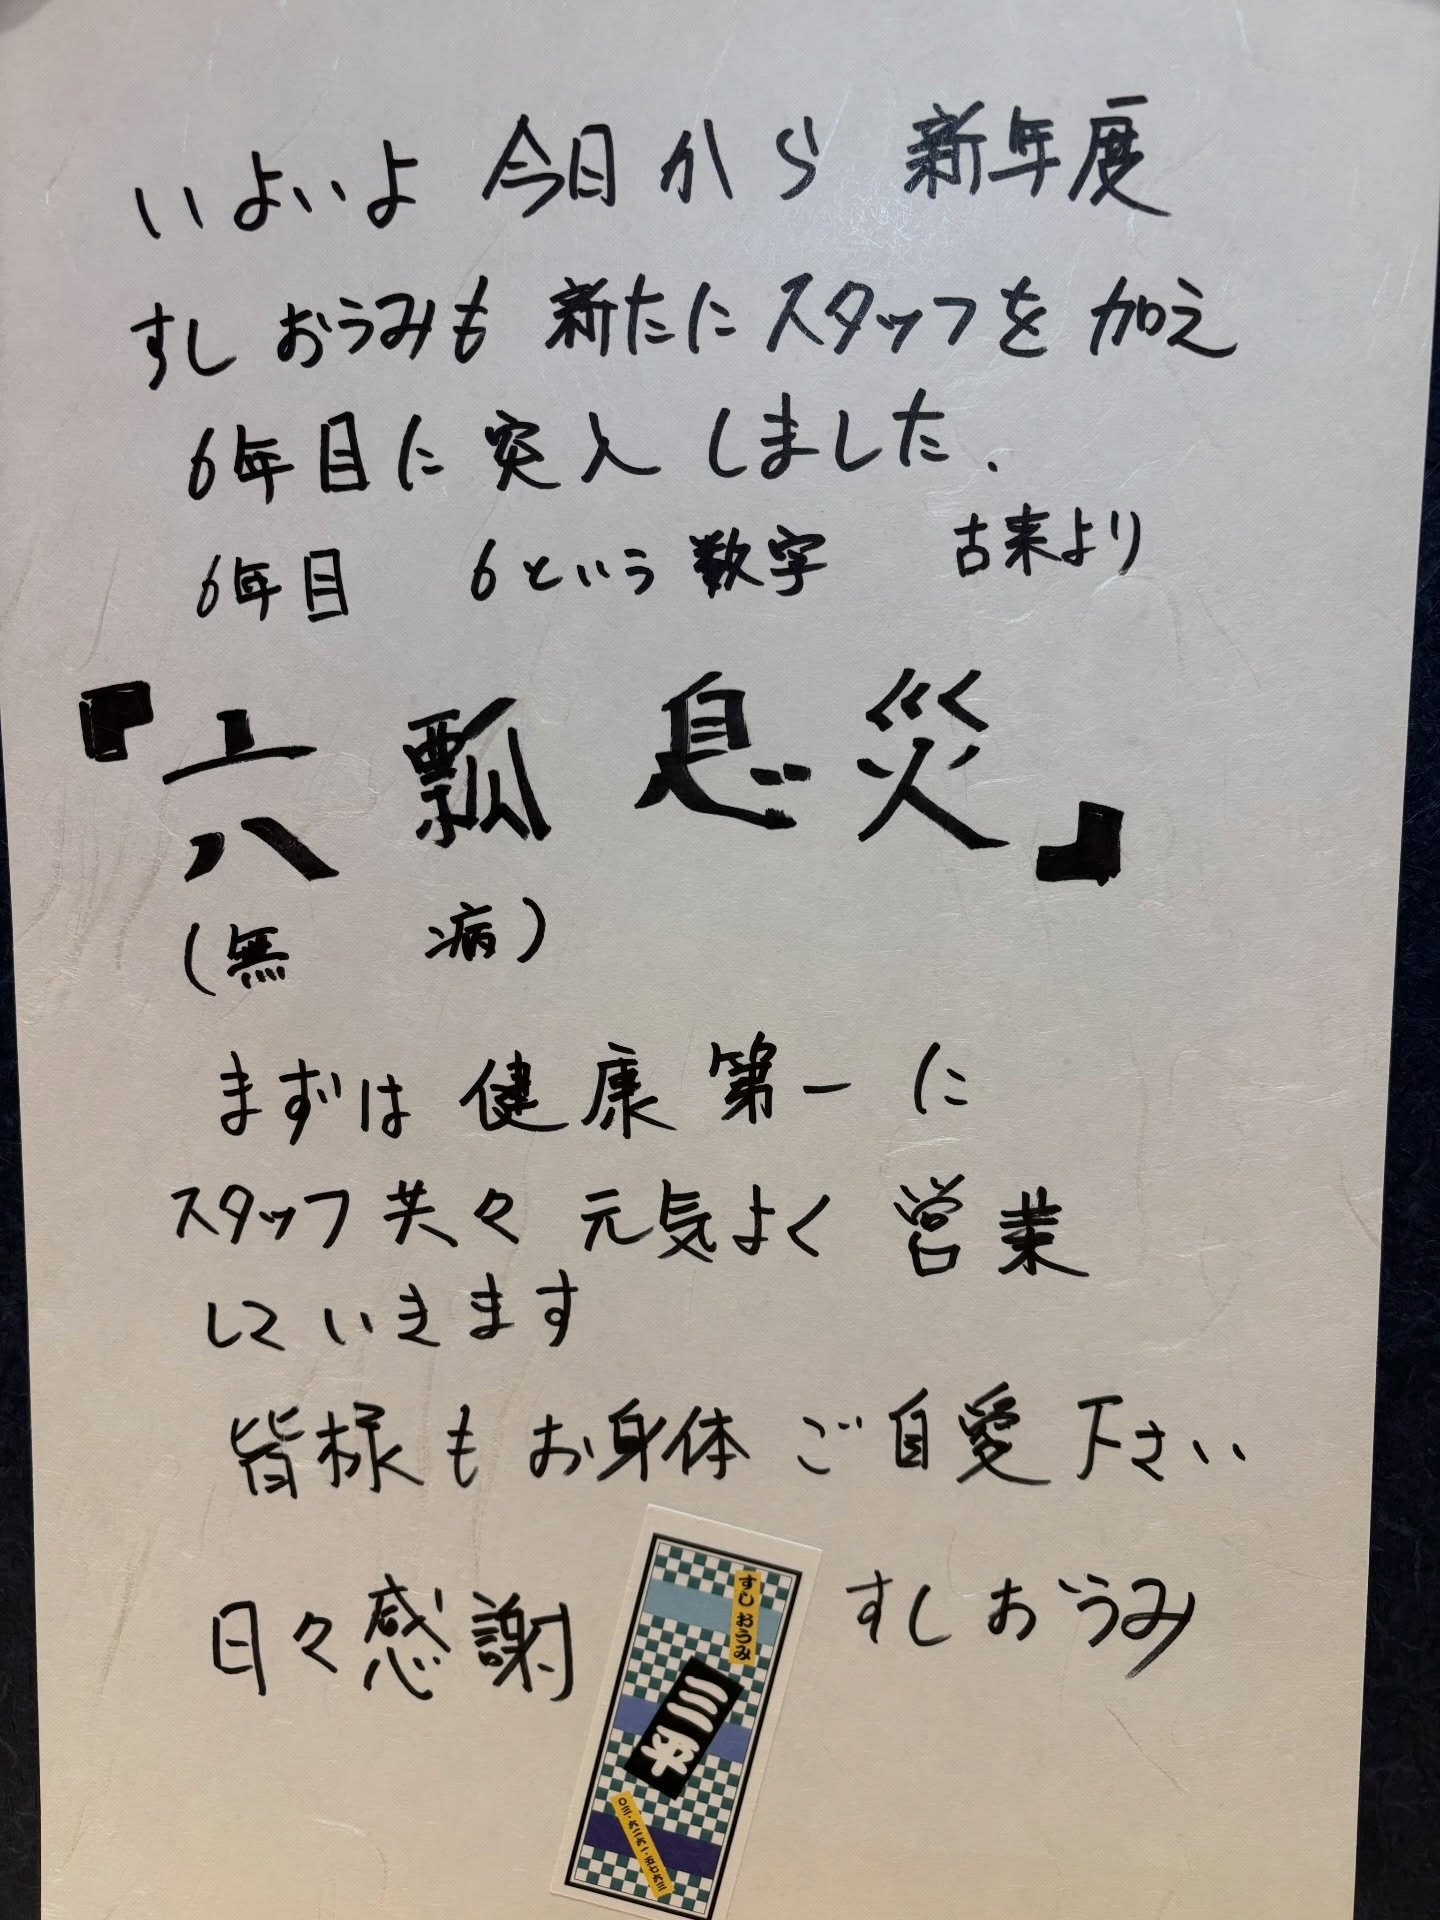 いよいよ 今日から 新年度
すし おうみも 新たに スタッフを 加え
6年目に 突入 しました.
6年目 6という 数字 古来より
『六瓢息災』
(無 病)
まずは 健康 第一 に
スタッフ 共々 元気よく 営業
して いきます
皆様も お身体 ご自愛 下さい
日々感謝 すし おうみ
すし おうみ
三平